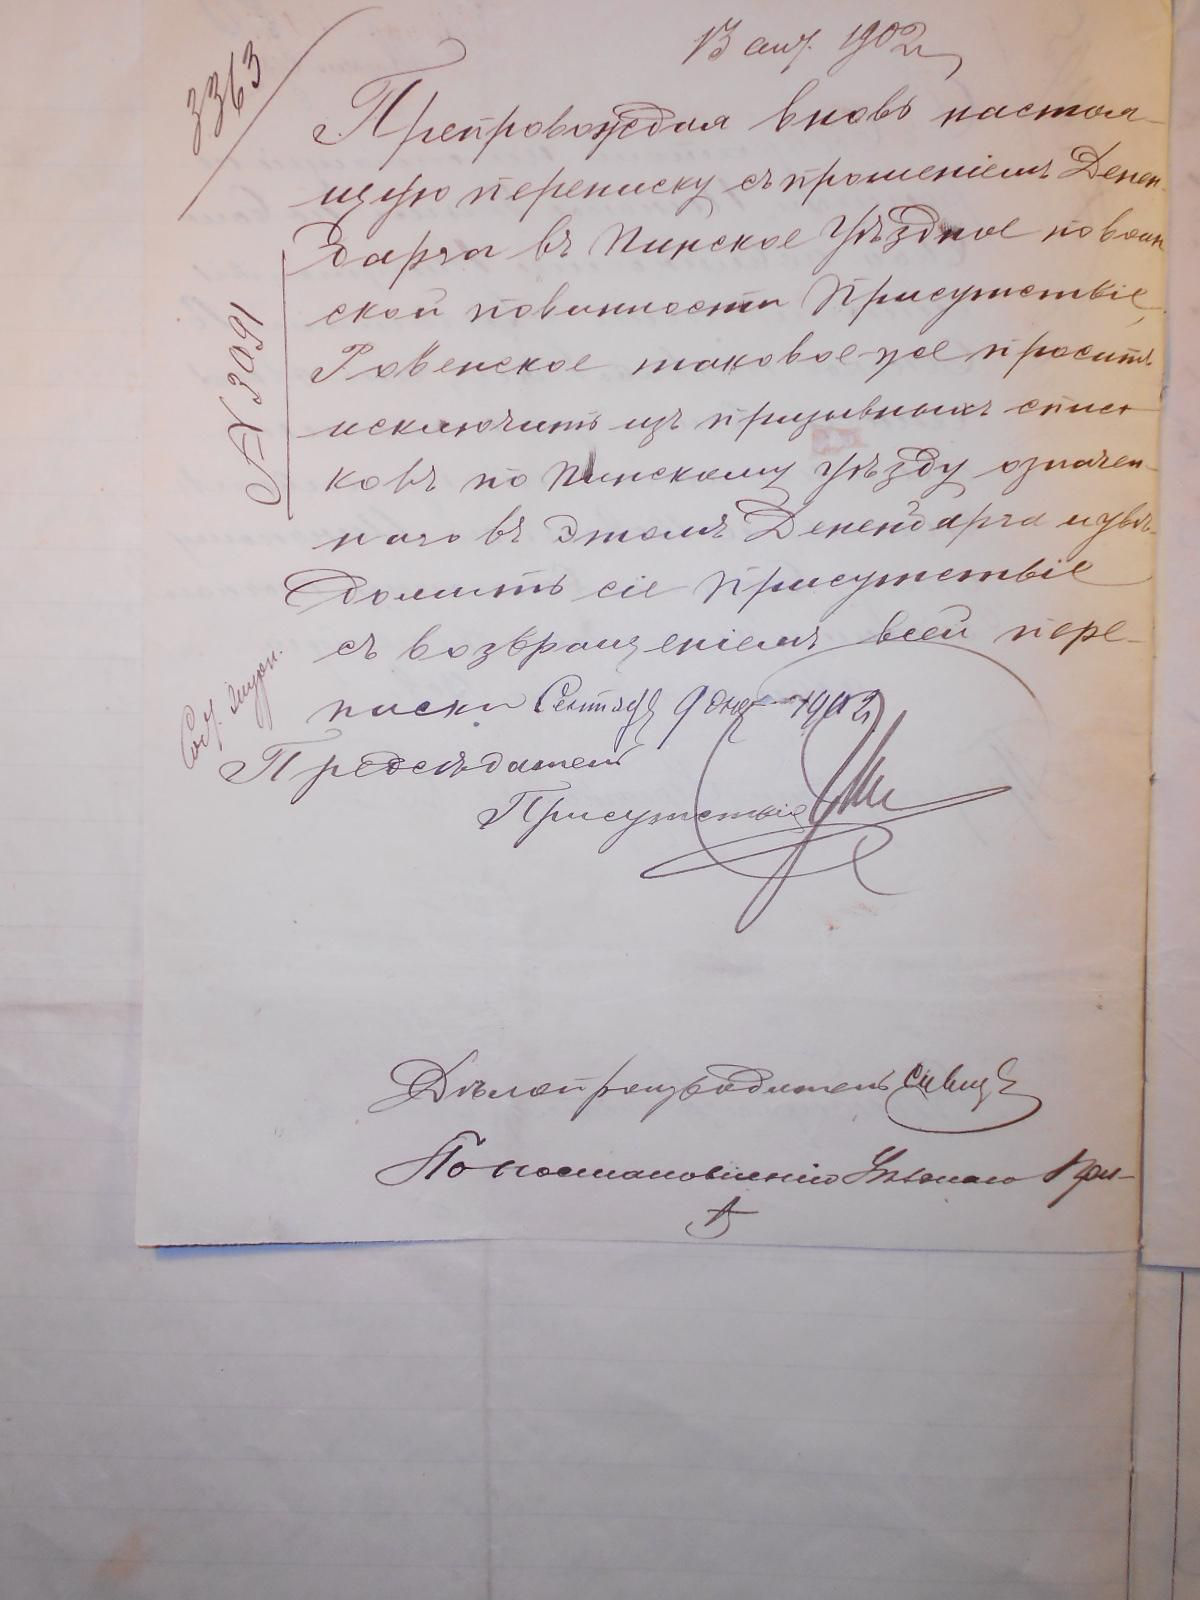 13 1902 г
3363
Препровождая вновь настоя-
щую переписку съ прошеніемъ Денен-
барга въ Пинское Уѣздное по воин
ской повинности Присутствіе,
Ровенское таковое-же проситъ
исключить изъ призывныхъ спис
ковъ по Пинскому уѣзду означен-
наго въ этомъ Дененбарга и увѣ-
домить сіе Присутствіе
съ возвращеніемъ всей пере-
писки Сентября 9 дня 1902
№ 3091
Предсѣдатель
Присутствія
Дѣлопроизводитель
По постановленію Уѣзднаго При-